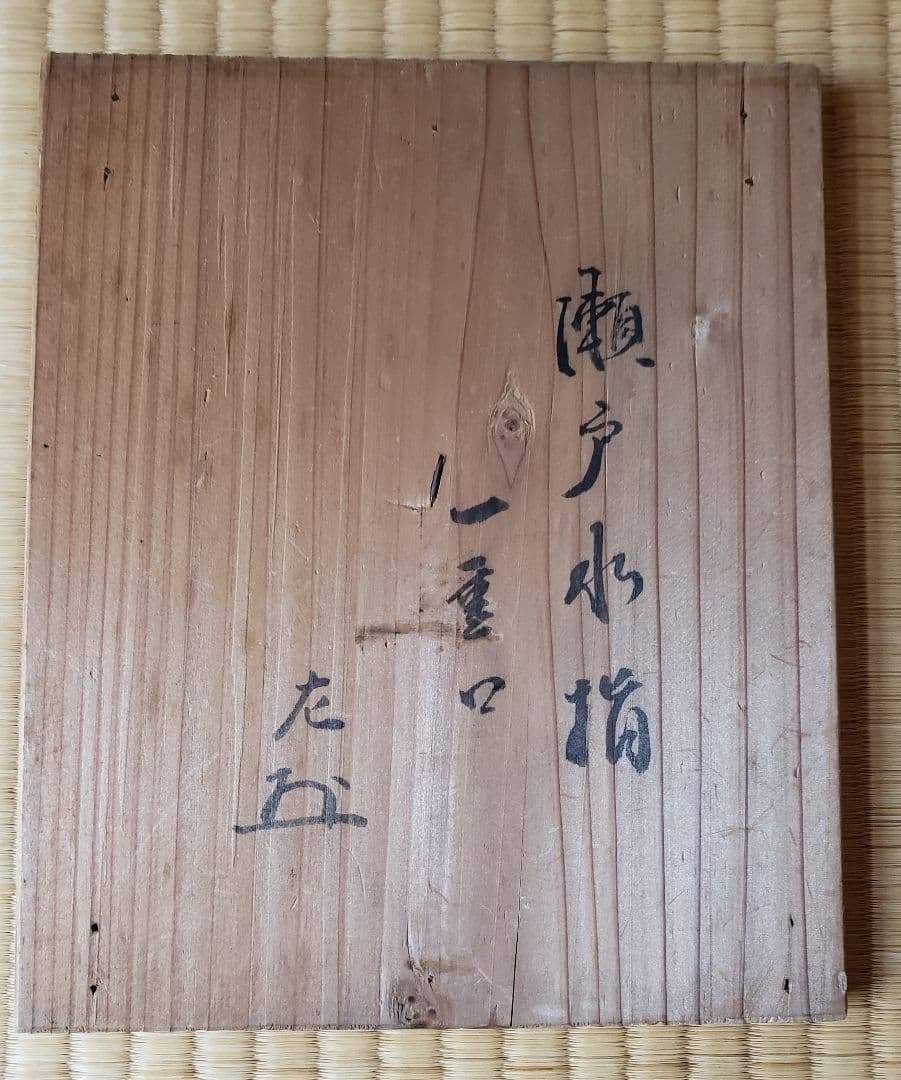 瀬戸水指
一重口
左